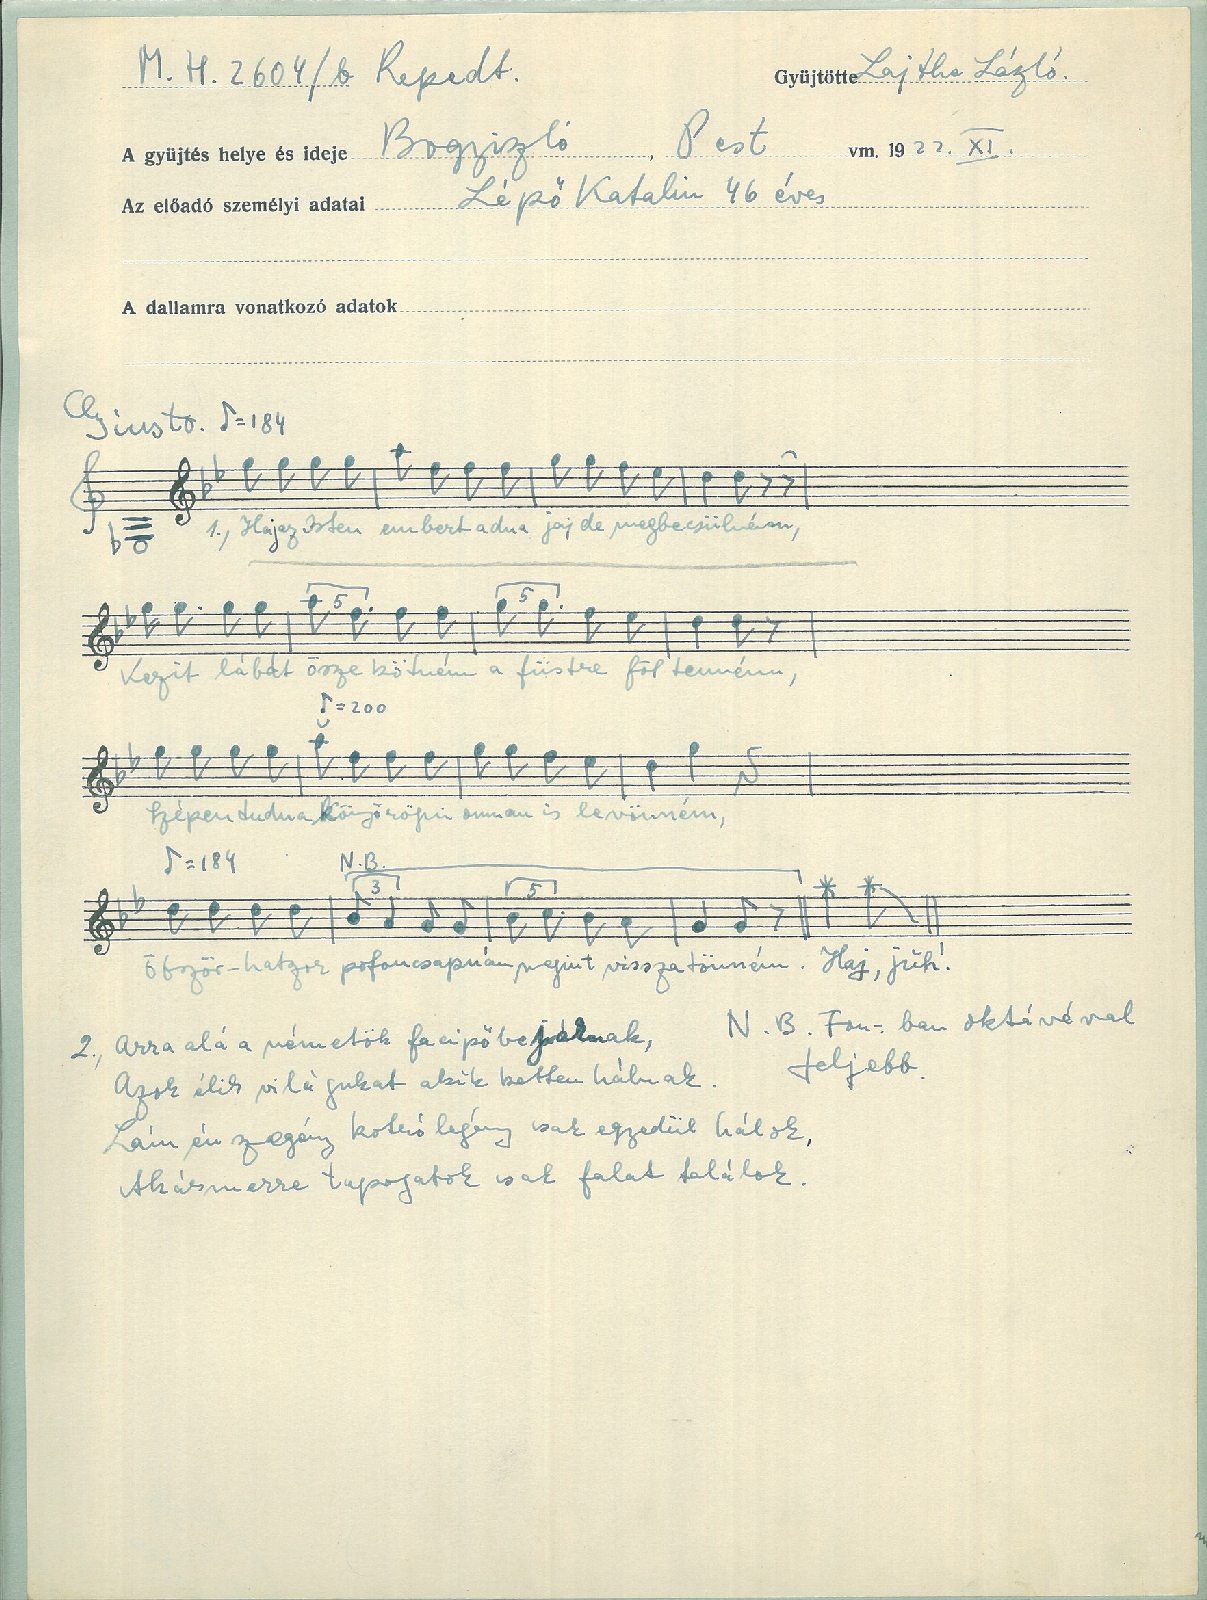 M. H. 2604/b Repedt.
Gyüjtötte Lajtha László.
A gyüjtés helye és ideje Bogyiszló, Pest vm. 1922. XI.
Az előadó személyi adatai Lépő Katalin 46 éves
A dallamra vonatkozó adatok
Giusto. ♪=184
1., Haj az Isten embert adna jaj de megbecsülném,
5 5
Kezit lábát össze kötném a füstre föl tenném,
♪=200
Szépen tudna könyörögni onnan is levönném,
♪=184 N.B.
3 5
Ötször-hatszor pofoncsapnám, megint vissza tönném. Haj, juh!
2., Arra alá a németök facipőbe járnak,
Azok élik világukat akik ketten hálnak.
Lám én szegény kotró legény csak egyedül hálok,
Akármerre tapogatok csak falat találok.
N. B. Fon-. ban oktávéval
feljebb.